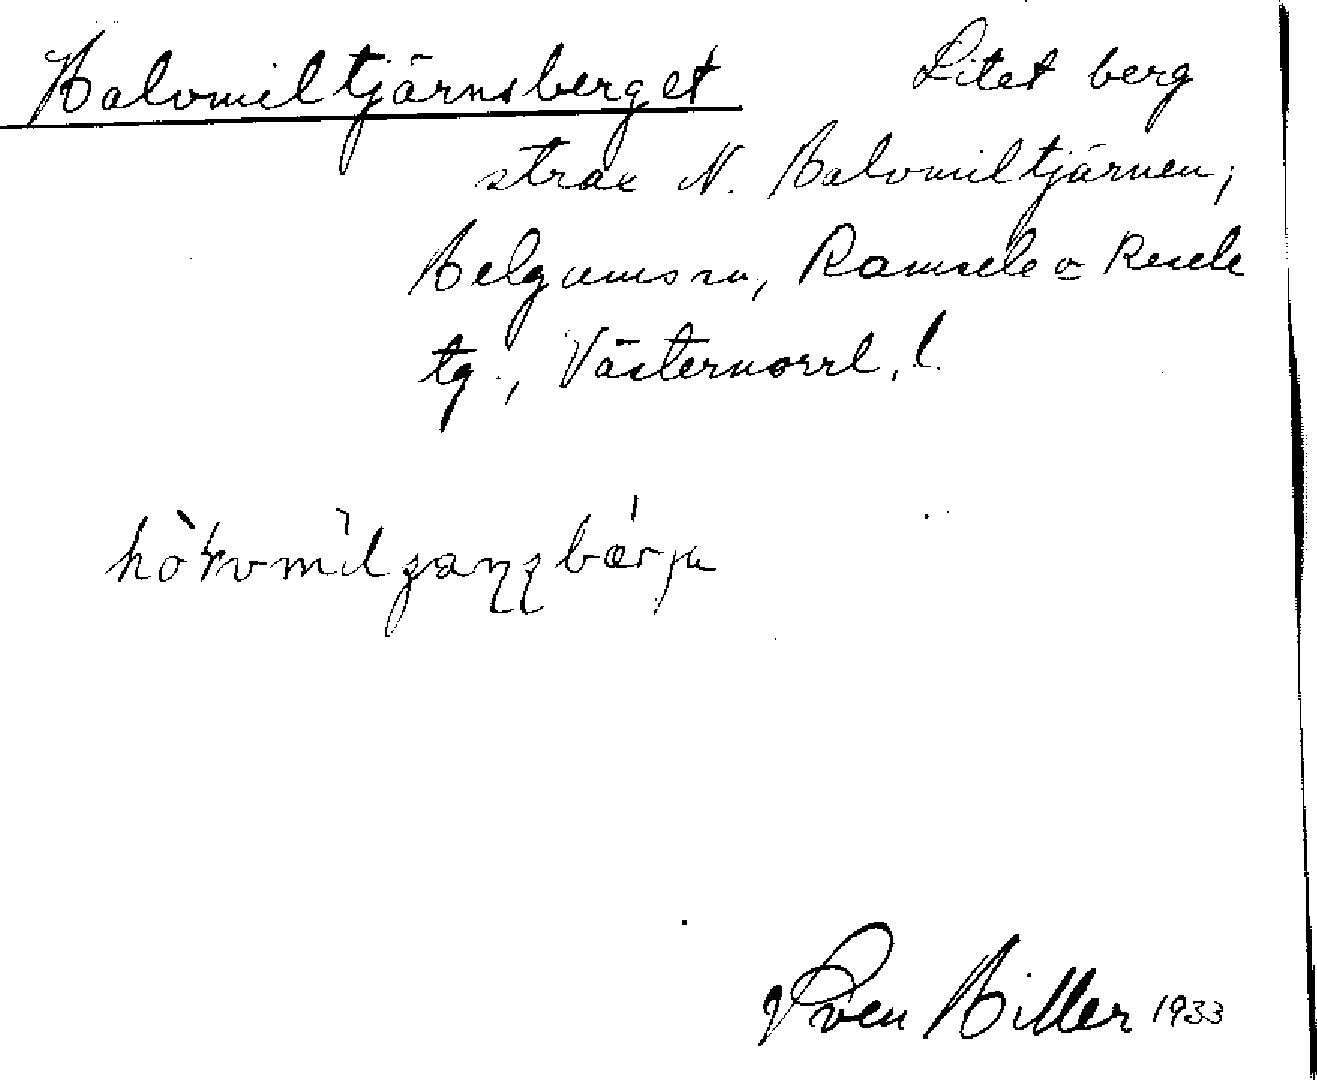 Halvmiltjärnsberget Litet berg
strax N. Halvmiltjärnen,
Helgums sn, Ramsele o Resele
tg., Västernorrl. l.
Sven Hiller 1933